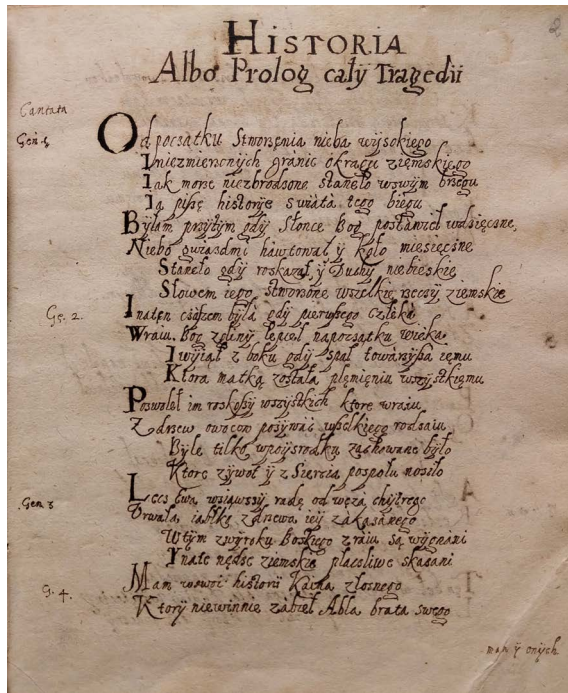 HISTORIA
Albo Prolog cały Tragedii
Cantata
Gen: 1
Od początku Stworzenia nieba wysokiego
Iniezmierzonych granic okręgu ziemskiego
Iak morze niezbrodzone stanęło wswym brzegu
Ią piszę historyię swiata tego biegu
Byłam przytym gdy Słonce Bog postawieł wdzięczne,
Niebo gwiazdmi hawtował, ÿ koło miesięczne
Stanęło gdy roskazał, ÿ Duchy niebieskie
Słowem iego stworzone wszelkie rzeczy ziemskie
Ge. 2.
Inaten czas była gdy pierwszego Człeka
Wraiu Bog z gliny lepieł napoczątku wieka
I wyiął z boku gdy spał towarzysza iemu
Ktora matką została plęmięniu wszystkięmu
Pozwolił im roskoszy wszystkich ktore wraiu
Z drzew owocow pożywać wszelkiego rodzaiu
Byle tilko wpoysrodku zachowane było
Ktore żywot ÿ z Siercią pospołu nosiło
Gen 3
Lecz Ewa wziąwszy radę od węża chytrego
Urwała iabłko zdrzewa ieÿ zakazanego
Wtym zwyroku Boskiego z raiu są wygnani
Ynate nędze ziemskie płaczliwe skazani
G. 4.
Mam wswoi historii Kaina złosnego
Ktory niewinnie zabieł Abla brata swego
mam ÿ onych